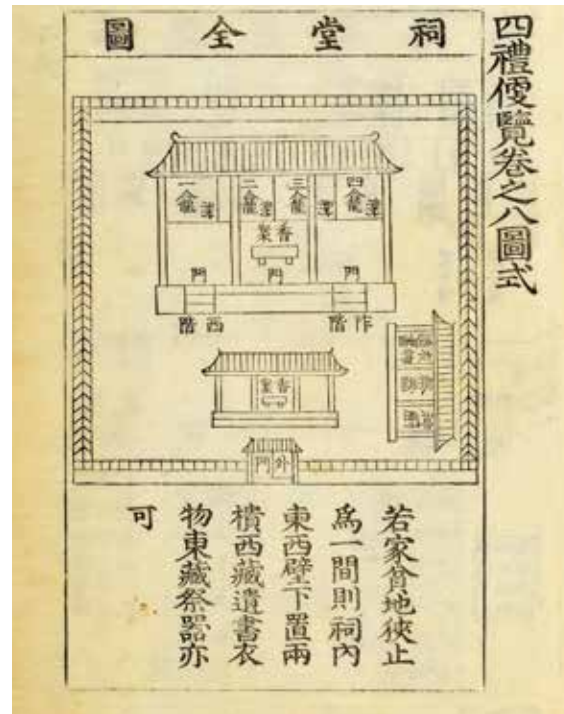 四禮便覽卷之八圖式
祠堂全圖
四龕
三龕
二龕
一龕
香案
門
門
門
阼階
西階
香案
外門
若家貧地狹止
爲一間則祠內
東西壁下置兩
樻西藏遺書衣
物東藏祭器亦
可